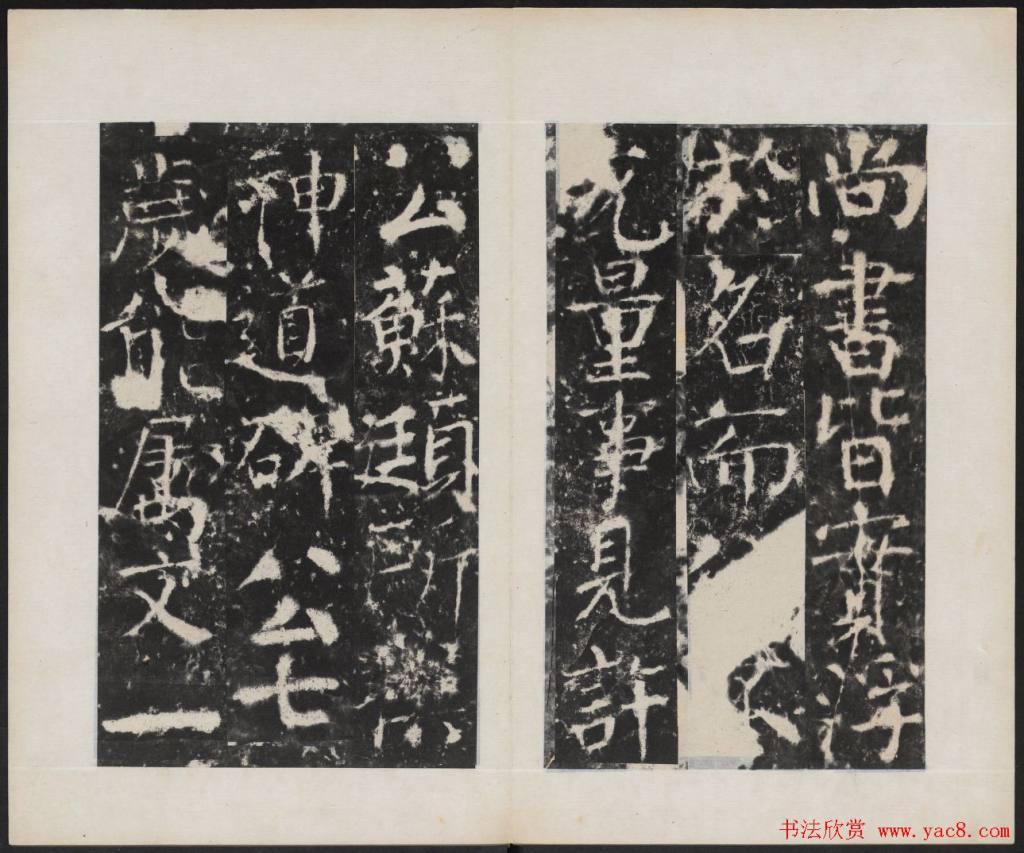 尚書皆實浮
於名而
無量事見許
公蘇頲所
神道碑公七
歲能屬文一
书法欣赏 www.yac8.com